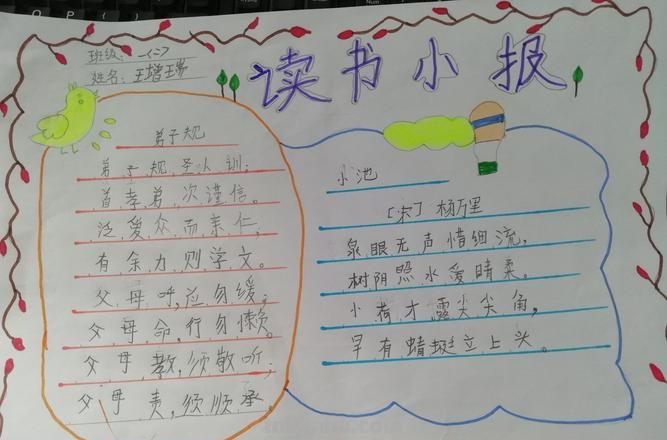 读书小报
班级：一(二)
姓名：王增
弟子规
弟子规,圣人训；
首孝弟,次谨信。
泛爱众,而亲仁；
有余力,则学文。
父母呼,应勿缓；
父母命,行勿懒。
父母教,须敬听；
父母责,须顺承
小池
[宋] 杨万里
泉眼无声惜细流,
树阴照水爱晴柔。
小荷才露尖尖角,
早有蜻蜓立上头。